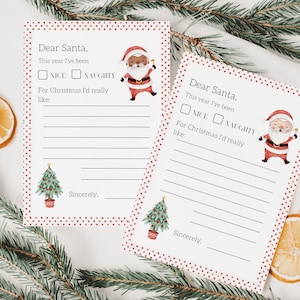 Dear Santa,
This year I've been
NICE NAUGHTY
For Christmas I'd really
like:
Sincerely,
Dear Santa,
This year I've been
NICE NAUGHTY
For Christmas I'd really
like:
Sincerely,